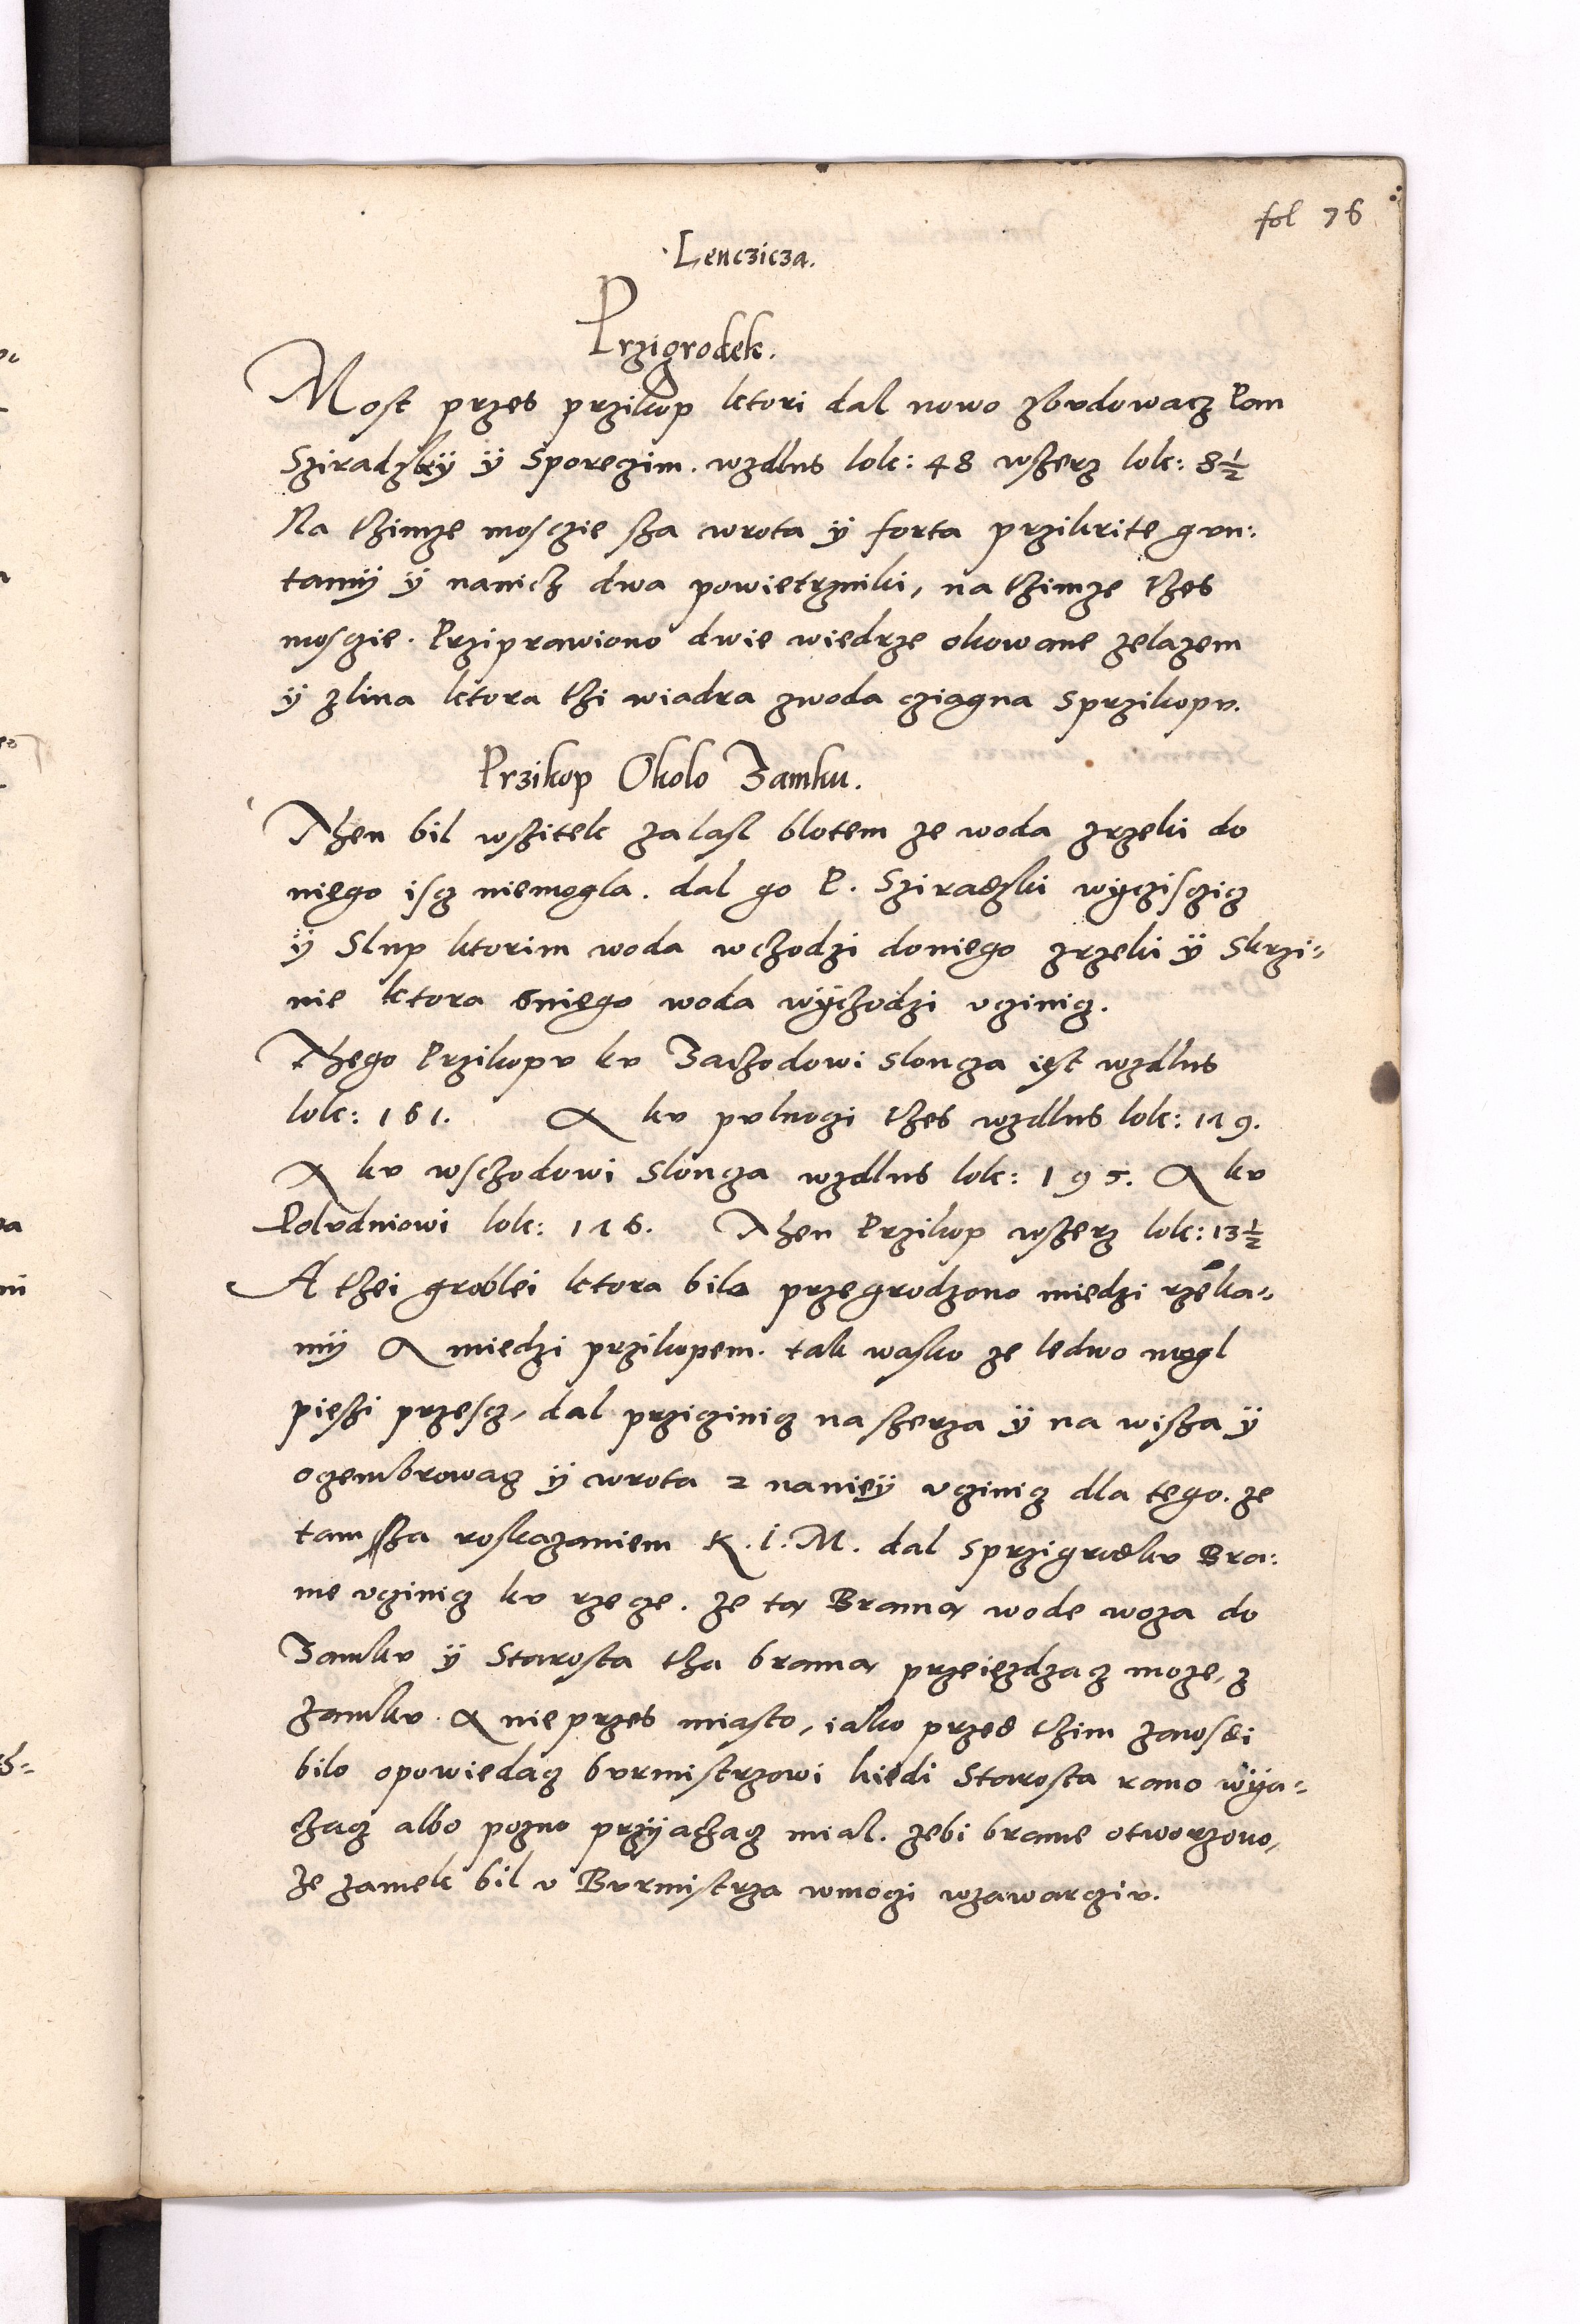 fol 76
Lenczicza.
Przigrodek.
Most przes przikop ktori dal nowo zbvdowacz Pan
Sziradzkÿ ÿ Sporeczim. wzdlus lok: 48 wszerz lok: 8½
Na thimze mosczie sza wrota ÿ forta przikrite gvn:
tamÿ ÿ nanich dwa powietrzniki, na thimze thes
moscie. Prziprawiono dwie wiedrze okowane zelazem
ÿ zlina ktora thi wiadra zwoda cziagna Sprzikopv.
Przikop Okolo Zamku.
Then bil wszitek zalasl blotem ze woda zrzeki do
niego iscz niemogla. dal go P. Sziradzki wÿcziscicz
ÿ Slup ktorim woda wchodzi doniego zrzeki ÿ Skrzi-
nie ktora sniego woda wÿchodzi vczinicz.
Thego Przikopv kv Zachodowi Sloncza iest wzdlus
lok: 161. A kv pvlnoczi thes wzdlus lok: 119.
A kv wschodowi Sloncza wzdlus lok: 195. A kv
Polvdniowi lok: 116. Then Przikop wszerz lok: 13½
A thei groblei ktora bila przegrodzono miedzi rzeka-
mÿ A miedzi przikopem. tak wasko ze ledwo mogl
pieszi przescz, dal przicinicz na szerza ÿ na wisza ÿ
ocembrowacz ÿ wrota 2 naniey vczinicz dla tego. ze
tam sza roskazaniem K. i. M. dal Sprzigrodkv Bra:
me vczinicz kv rzecze. ze ta Brama wode woza do
Zamkv ÿ Starosta tha brama przeiezdzacz moze, z
zamkv. A nie przes miasto, iako przed thim zawsdi
bilo opowiedacz bvrmistrzowi kiedi Starosta rano wÿia-
chacz albo pozno przÿachacz mial. zebi brame otworzono,
ze zamek bil v Bvrmistrza wmoczi wzawarciv.